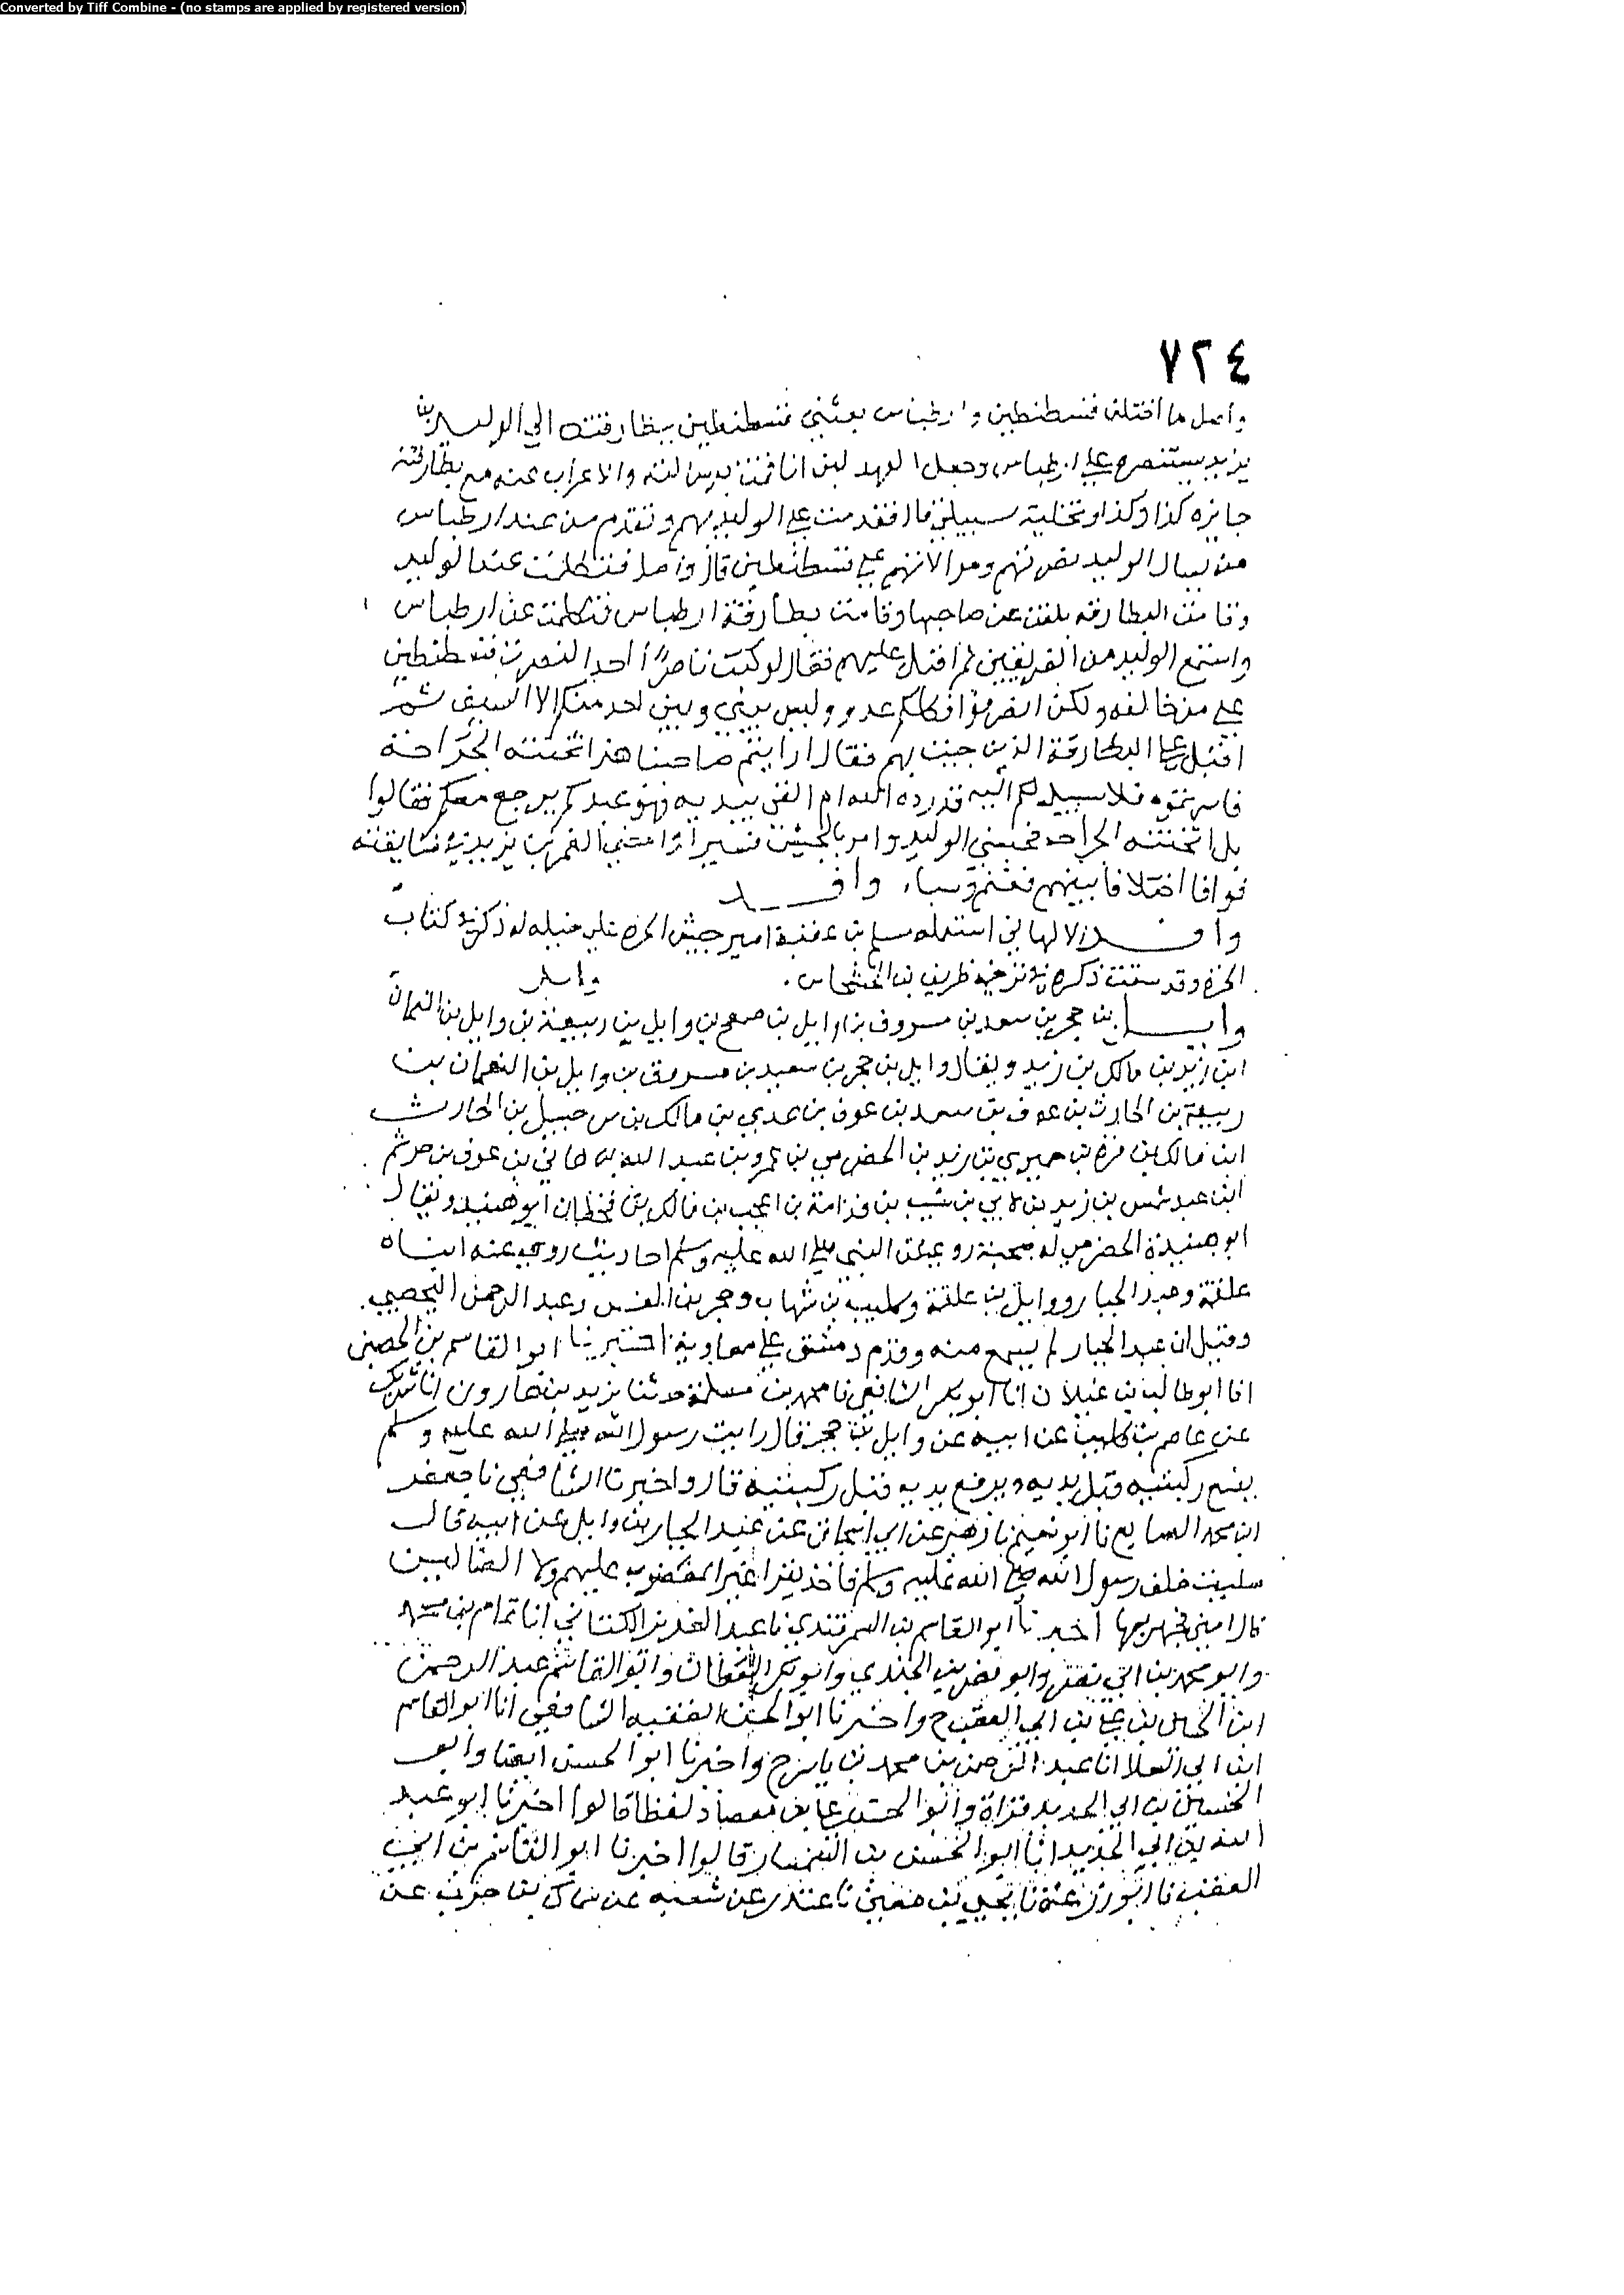 Converted by Tiff Combine - (no stamps are applied by registered version)
٧٢٤
واصل ما اختلف قسطنطين وارطباس بعثني قسطنطين ببطارقته الي الوليد بن
يزيد يستنصره علي ارطباس وجعل العهد لين انا قمت برسالته والاعراب عنه مع بطارقته
جايزه كذا وكذا وتخلية سبيلي قال فقدمت علي الوليد بهم وتقدم من عند ارطباس
من يسال الوليد نصرتهم وموالاتهم علي قسطنطين قال واصل فتكلمت عند الوليد
وقامت البطارقه بلغت عن صاحبها وقامت بطارقة ارطباس فتكلمت عن ارطباس
واستمع الوليد من الفريقين ثم اقبل عليهم فقال لو كنت ناصرًا احدا لنصرت قسطنطين
علي من خالفه ولكن انصرفوا فكلكم عدو وليس بيني وبين احد منكم الا السيف ثم
اقبل علي البطارقة الذين جيت بهم فقال ارايتم صاحبنا هذا اثخنته الجراحة
فاسرتموه فلا سبيل لكم اليه قد رده الله ام القي بيديه فهو عبدكم يرجع معكم فقالوا
بل اثخنته الجراحه فحبسني الوليد وامر بالجيش فسير الغمر بن يزيد
فوافا اختلافا بينهم فغنم وسبا، وافد
وافد الالهاني استعمله مسلم بن عقبة امير جيش الحره علي له ذكر في كتاب
الحره وقد سقت ذكره في ترجمة طريف بن الخشخاس. وايل
وايل بن حجر بن سعد بن مسروق بن وايل بن ضمعج بن وايل بن ربيعة بن وايل بن النعمان
ابن زيد بن مالك بن زيد ويقال وايل بن حجر بن سعيد بن مسروق بن وايل بن النعمان بن
ربيعة بن الحارث بن عوف بن سعد بن عوف بن عدي بن مالك بن شرحبيل بن الحارث
ابن مالك بن مرة بن حميري بن زيد بن الحضرمي بن عمرو بن عبد الله بن هاني بن عوف بن جرشم
ابن عبد شمس بن زيد بن لابي بن شبيب بن قدامة بن اعجب بن مالك بن قحطان ابو هنيد ويقال
ابو هنيدة الحضرمي له صحبة روي عن النبي صلي الله عليه وسلم احاديث روي عنه ابناه
علقمة وعبد الجبار ووايل بن علقمة وكليب بن شهاب وحجر بن العنبس وعبد الرحمن اليحصبي.
وقيل ان عبد الجبار لم يسمع منه وقدم دمشق علي معاوية اخبرنا ابو القاسم بن الحصين
انا ابو طالب بن غيلان انا ابو بكر الشافعي نا محمد بن مسلمة حدثنا يزيد بن هارون انا شريك
عن عاصم بن كليب عن ابيه عن وايل بن حجر قال رايت رسول الله صلي الله عليه وسلم
يضع ركبتيه قبل يديه ويرفع يديه قبل ركبتيه قال واخبرنا الشافعي نا جعفر
ابن محمد الصايع نا ابو نعيم نا زهير عن ابي اسحاق عن عبد الجبار بن وايل عن ابيه قال
صليت خلف رسول الله صلي الله عليه وسلم فاخذ يقرا غير المغضوب عليهم ولا الضالين
قال امين فجهر بها اخبرنا ابو القاسم بن السمرقندي نا عبد العزيز الكتاني انا تمام بن محمد
وابو محمد بن ابي نصر وابو نصر بن الجندي وابو بكر القطان وابو القاسم عبد الرحمن
ابن الحسين بن علي بن ابي العقب ح واخبرنا ابو الحسن الفقيه الشافعي انا ابو القاسم
ابن ابي العلا انا عبد الرحمن بن محمد بن ياسر ح واخبرنا ابو الحسن ايضا وابو
الحسين بن ابي الحديد قراة وابو الحسن علي بن معضاد لفظا قالوا اخبرنا ابو عبد
الله بن ابي الحديد انا ابو الحسن بن السمسار قالوا اخبرنا ابو القاسم بن ابي
العقب نا ابو زرعة نا يحيي بن معين نا غندر عن شعبه عن سماك بن حرب عن